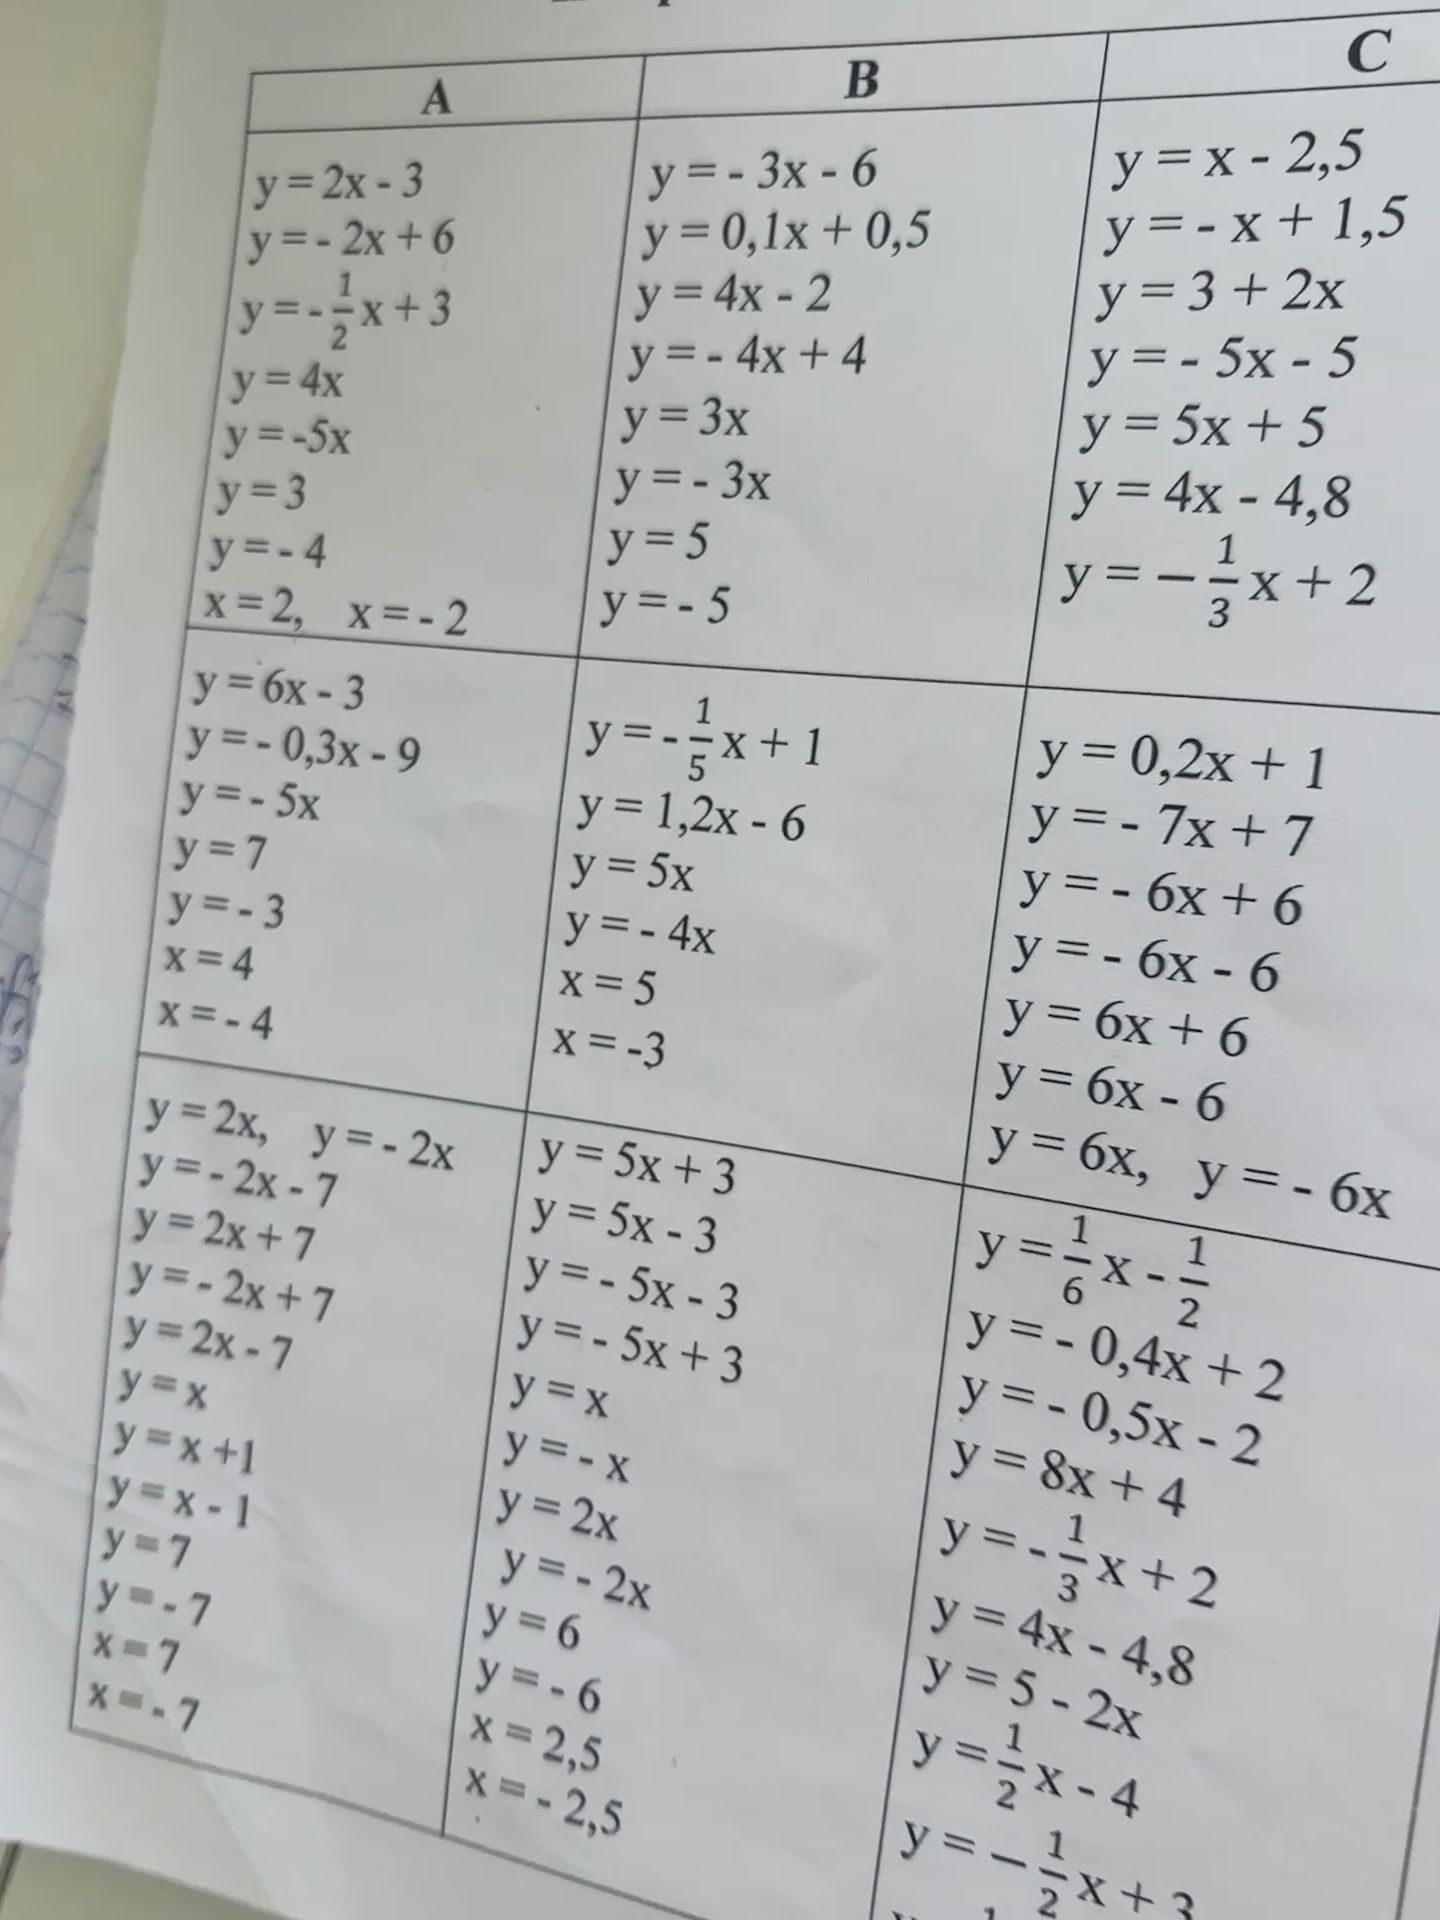 A
B
C
y = 2x - 3
y = - 2x + 6
y = - 1/2 x + 3
y = 4x
y = -5x
y = 3
y = - 4
x = 2, x = - 2
y = - 3x - 6
y = 0,1x + 0,5
y = 4x - 2
y = - 4x + 4
y = 3x
y = - 3x
y = 5
y = - 5
y = x - 2,5
y = - x + 1,5
y = 3 + 2x
y = - 5x - 5
y = 5x + 5
y = 4x - 4,8
y = – 1/3 x + 2
y = 6x - 3
y = - 0,3x - 9
y = - 5x
y = 7
y = - 3
x = 4
x = - 4
y = - 1/5 x + 1
y = 1,2x - 6
y = 5x
y = - 4x
x = 5
x = -3
y = 0,2x + 1
y = - 7x + 7
y = - 6x + 6
y = - 6x - 6
y = 6x + 6
y = 6x - 6
y = 6x, y = - 6x
y = 2x, y = - 2x
y = - 2x - 7
y = 2x + 7
y = - 2x + 7
y = 2x - 7
y = x
y = x +1
y = x - 1
y = 7
y = - 7
x = 7
x = - 7
y = 5x + 3
y = 5x - 3
y = - 5x - 3
y = - 5x + 3
y = x
y = - x
y = 2x
y = - 2x
y = 6
y = - 6
x = 2,5
x = - 2,5
y = 1/6 x - 1/2
y = - 0,4x + 2
y = - 0,5x - 2
y = 8x + 4
y = - 1/3 x + 2
y = 4x - 4,8
y = 5 - 2x
y = 1/2 x - 4
y = – 1/2 x + 3